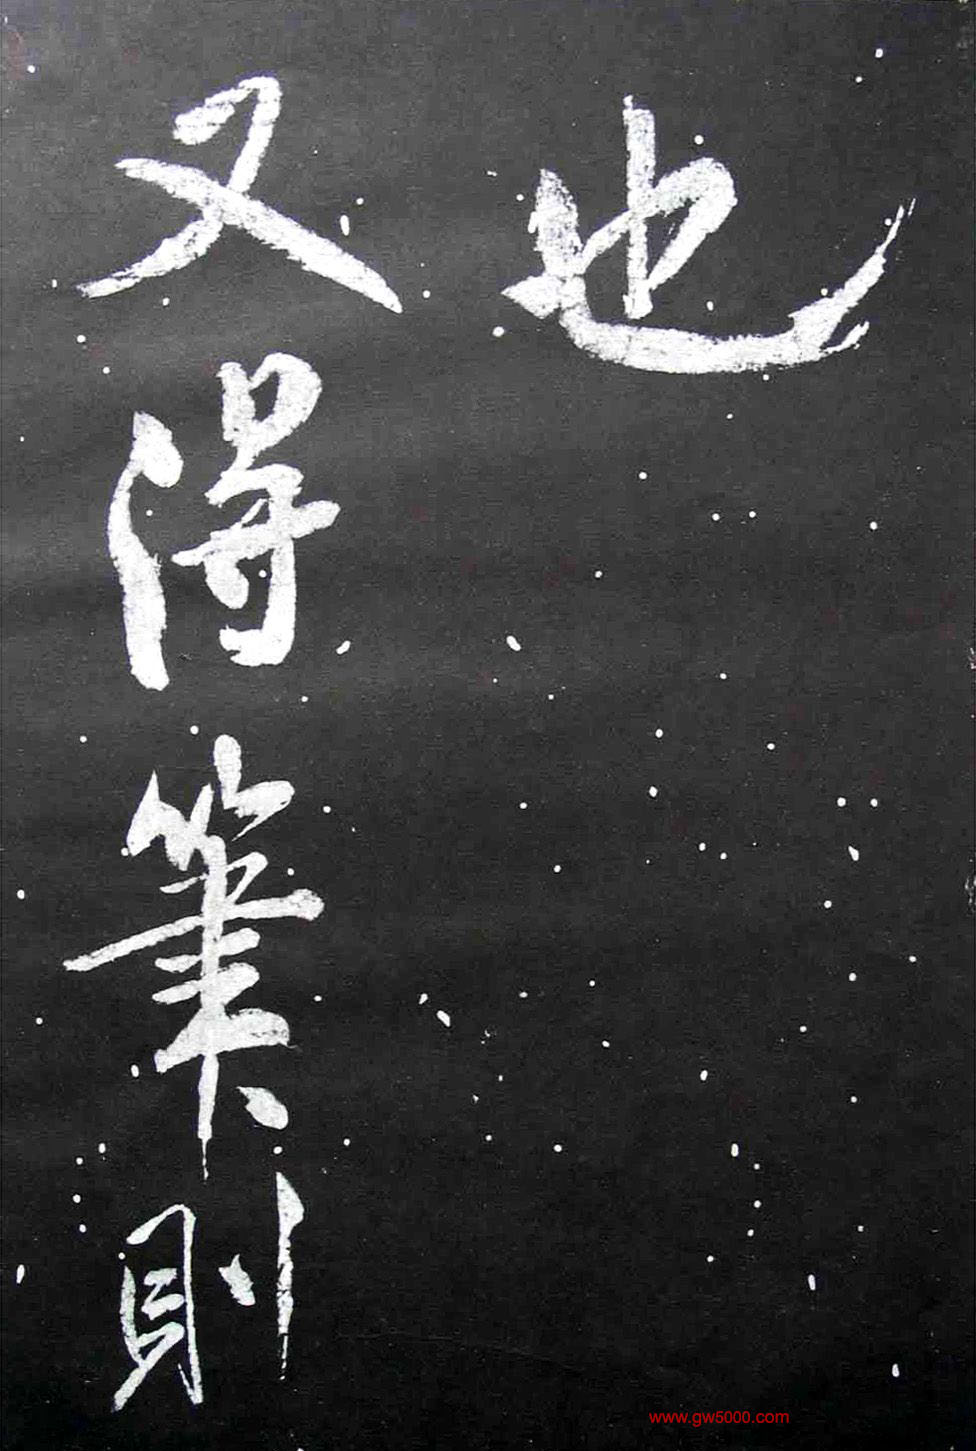 也
又得筆則
www.gw5000.com